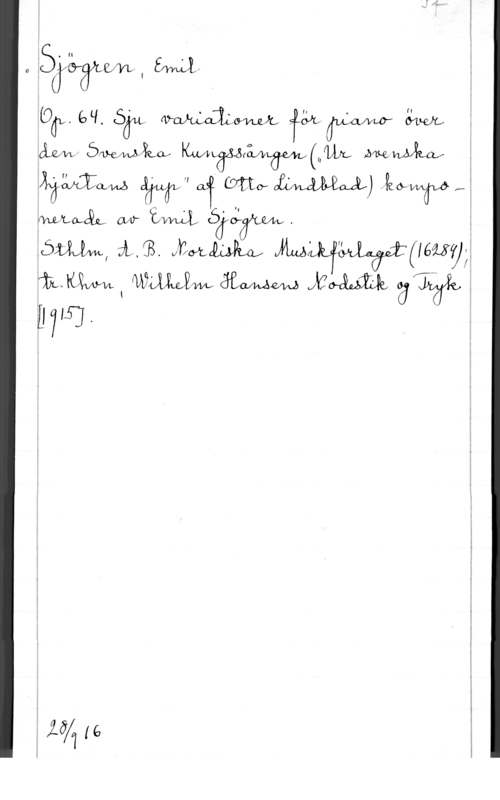 Sjögren, Emil
Op. 64. Sju variationer för piano över
den Svenska Kungssången („Ur svenska
hjärtans djup" af Otto Lindblad) kompo-
nerade av Emil Sjögren.
Sthlm, A.B. Nordiska Musikförlaget (16284);
tr. Khvn, Wilhelm Hansens Nodestik og Tryk
[1915].
28/9 16